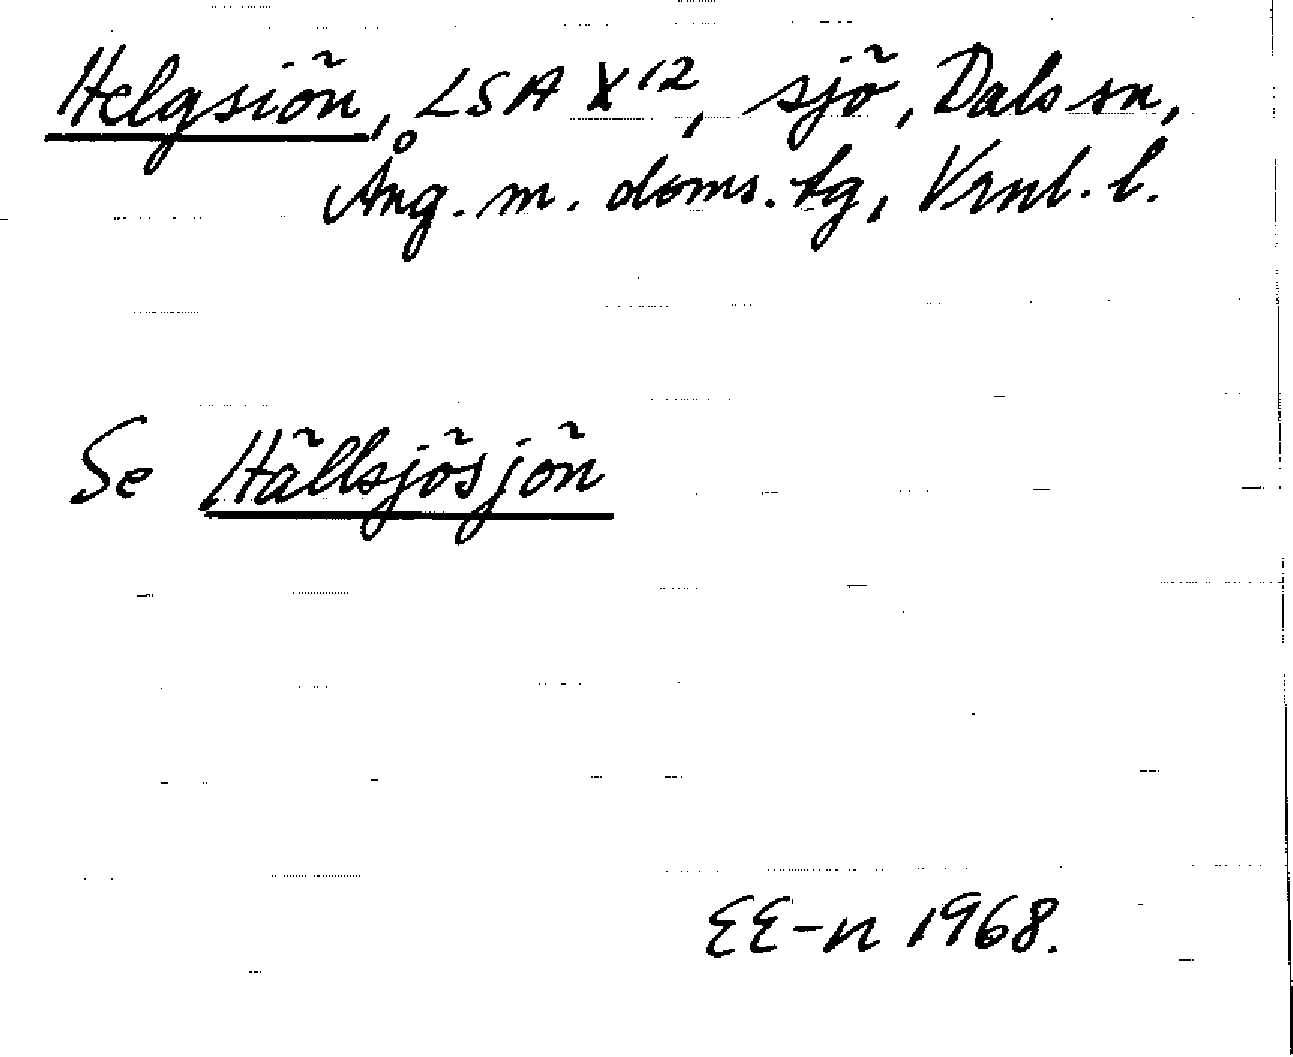 Helgsiön, LSA X 12, sjö, Dals sn,
Ång. m. doms. tg, Vrnl. l.
Se Hällsjösjön
EE-n 1968.